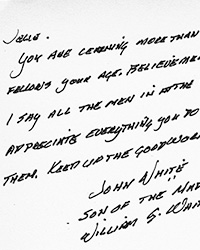 Jelle.
You are learning more than
fellows your age. Believe me
I say all the men in the
appreciate everything you do
them. Keep up the good wor
John White
Son of the Ma
William S. Whi